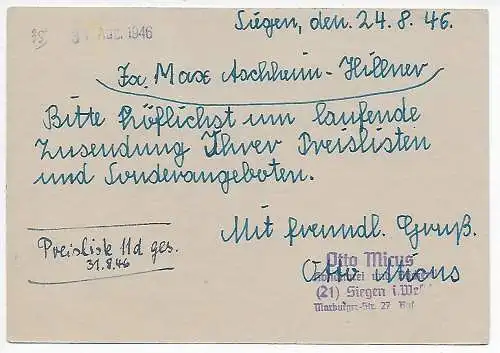 Siegen, den. 24.8.46.
35 31. Aug. 1946
Fa. Max Aschheim-Hillner
Bitte höflichst um laufende
Zusendung Ihrer Preislisten
und Sonderangeboten.
Mit freundl. Gruß.
Otto Micus
Preisliste 11d ges.
31.8.46
Otto Micus
und
(21) Siegen i. We
Marburger-Str. 27 Ruf